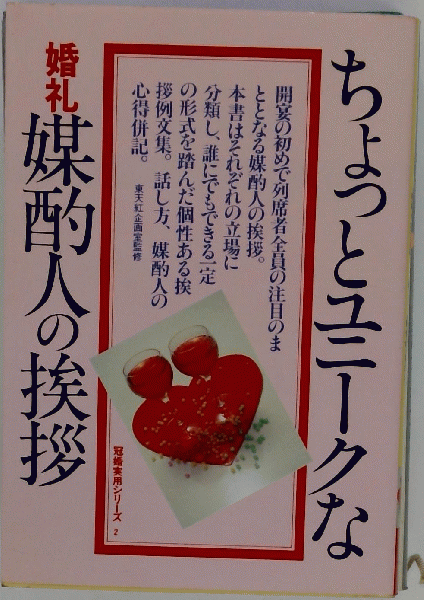 ちょっとユニークな
婚礼
媒酌人の挨拶
開宴の初めで列席者全員の注目のま
ととなる媒酌人の挨拶。
本書はそれぞれの立場に
分類し、誰にでもできる一定
の形式を踏んだ個性ある挨
拶例文集。話し方、媒酌人の
心得併記。
東天紅企画室監修
冠婚実用シリーズ 2